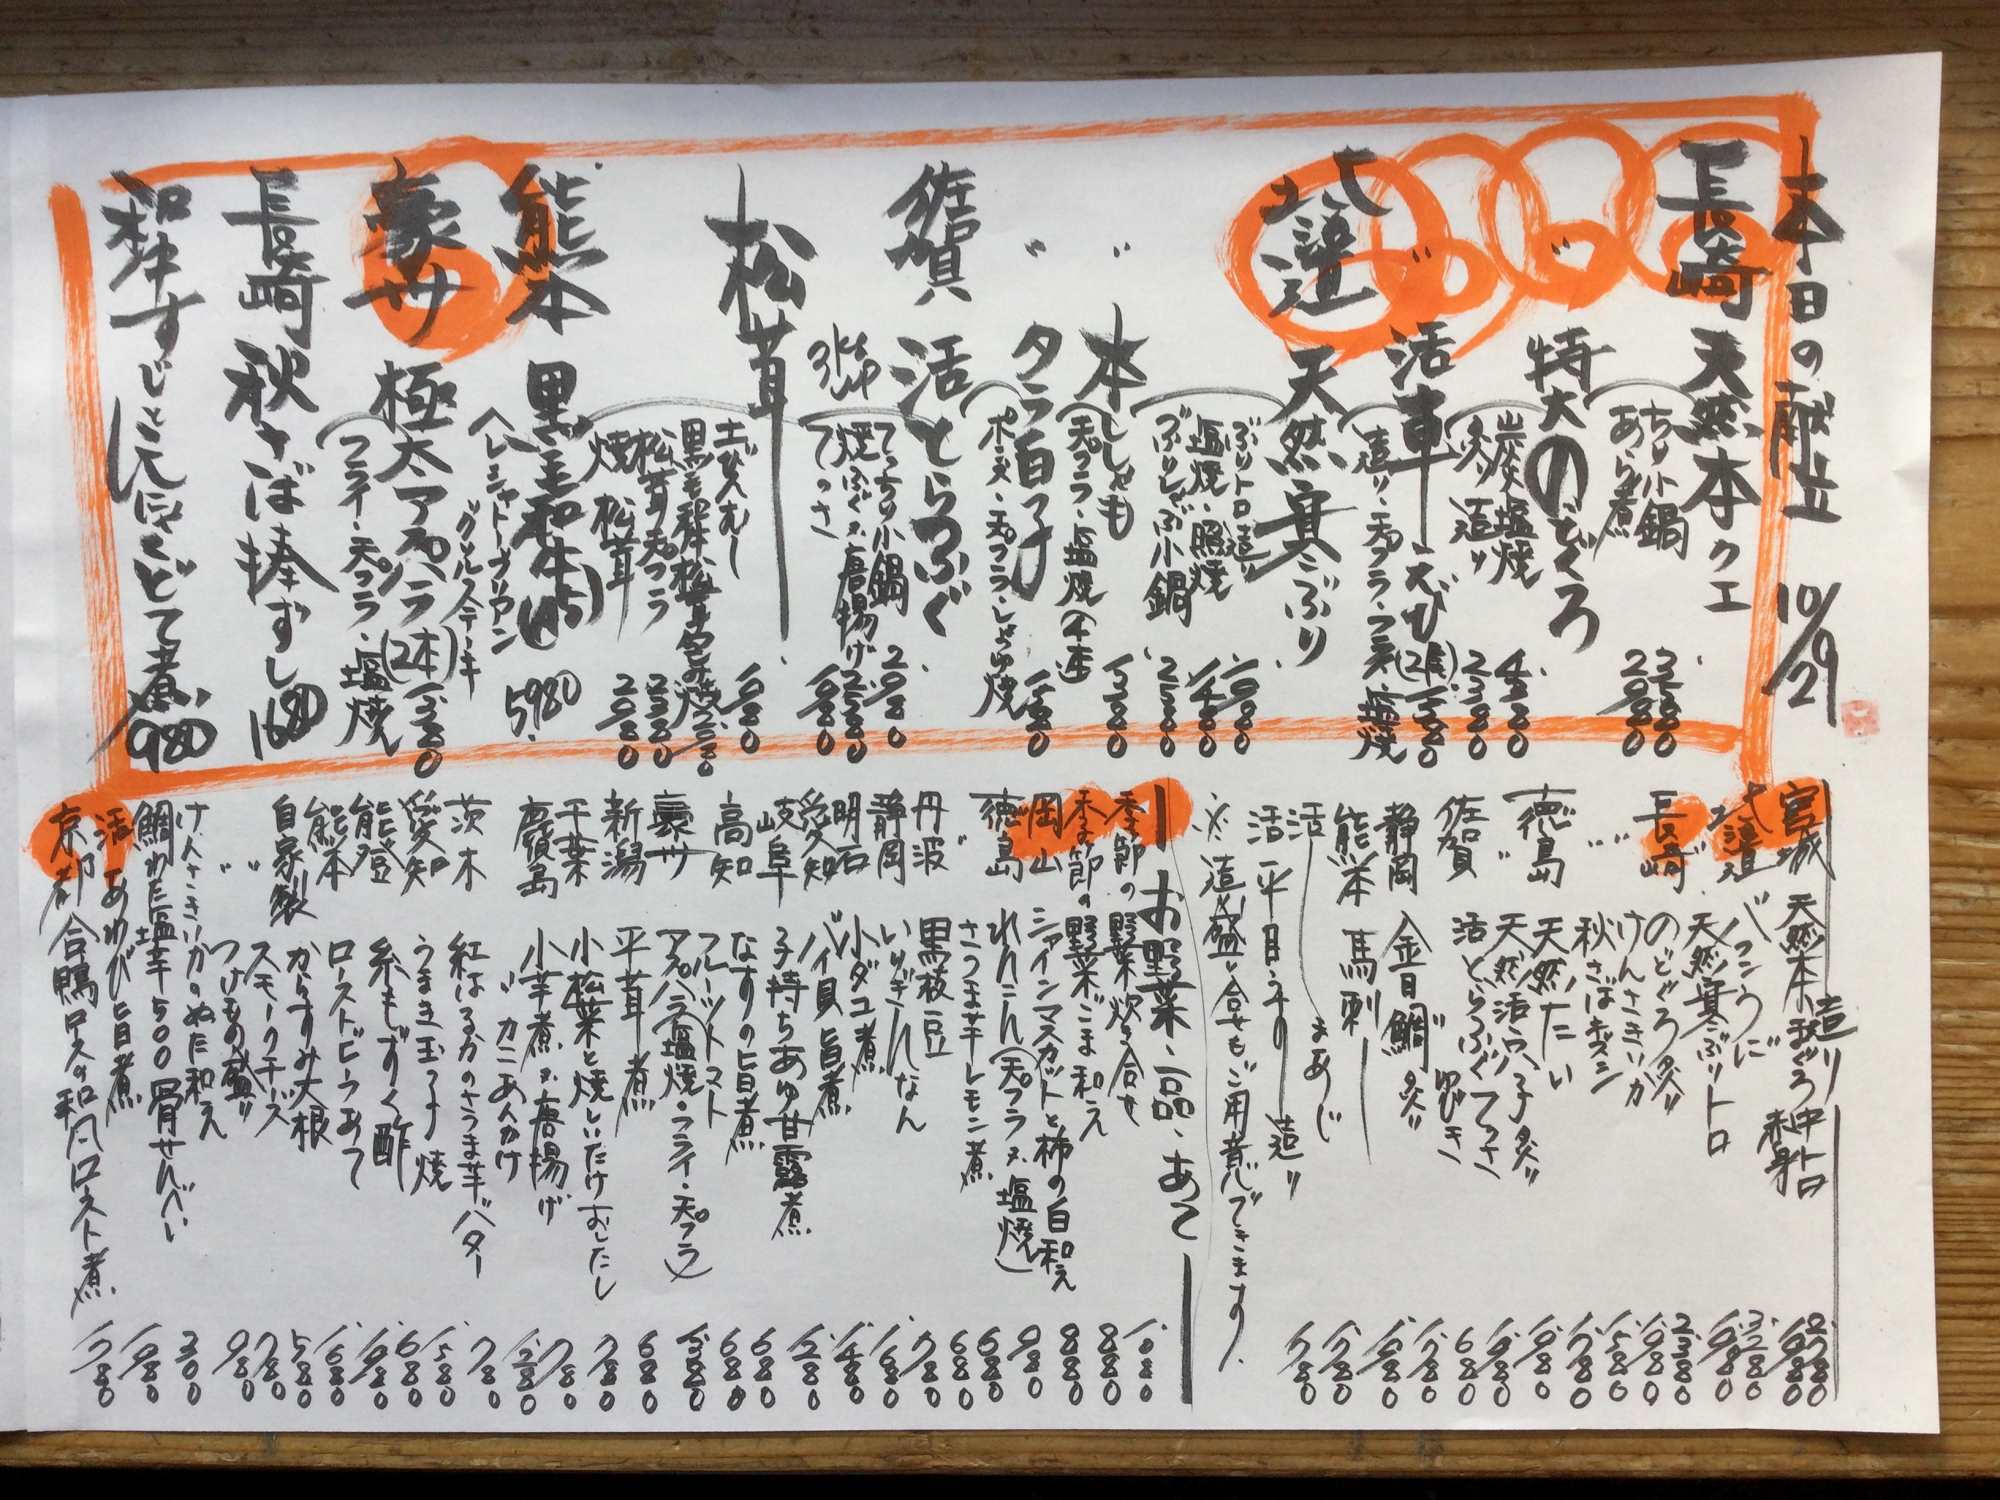 本日の献立 10/21
長崎 天然本クエ
ちり小鍋 3580
あら煮 2080
〃 特大のどくろ
炭火塩焼 4380
炙り造り 2380
〃 活車えび(2尾) 1580
造り・天プラ・フライ・塩焼
北海道 天然寒ぶり
ぶりトロ造り 1080
塩焼・照焼 1480
ぶりしゃぶ小鍋 2580
〃 本ししゃも 1380
天プラ・塩焼(4本)
〃 タラ白子 1580
ポン酢・天プラ・しょうゆ焼
佐賀 活とらふぐ
てっちり小鍋 2980
焼ふぐ又唐揚げ 2580
てっさ 1980
松茸
土びんむし 1080
松茸天プラ 2380
焼松茸 2080
熊本 黒毛和牛(A5) 5980
ヘレシャトーブリアン
グリルステーキ
豪州 極太アスパラ(2本) 1380
フライ・天プラ・塩焼
長崎 秋さば棒ずし 1680
和牛すじとこんにゃくどて煮 980
造り
宮城 天然本まぐろ 中トロ 2780
赤身 1980
北海道 バフンうに 3280
〃 天然寒ぶりトロ 1980
長崎 のどぐろ炙り 2380
〃 けんさきいか 1080
〃 秋さばキズシ 1580
徳島 天然たい 1780
〃 天然活穴子炙り 1080
佐賀 活とらふぐてっさ 1980
〃 ゆびき 680
静岡 金目鯛炙り 1780
熊本 馬刺 1980
活まあじ 1780
活平目うすの造り 1780
※造り盛り合せもご用意できます。
お野菜・一品・あて
季節の野菜炊き合せ 1080
季節の野菜ごま和え 880
岡山 シャインマスカットと柿の白和え 880
徳島 れんこん(天プラ又塩焼) 980
〃 さつま芋レモン煮 680
丹波 黒枝豆 680
〃 いちぢくなん 780
静岡 小ダコ煮 1680
明石 バイ貝旨煮 1480
愛知 子持ちあゆ甘露煮 1280
岐阜 なすの旨煮 680
高知 フルーツトマト 680
豪州 アスパラ(塩焼・フライ・天プラ) 1380
新潟 平茸煮 680
千葉 小松菜と焼しいたけおしたし 780
鹿児島 小芋煮又唐揚げ 780
〃 カニあんかけ 1280
茨木 紅はるかのさつま芋バター 780
愛知 うまき玉子焼 1580
能登 糸もずく酢 680
熊本 ローストビーフあて 1980
自家製 からすみ大根 1680
〃 スモークチーズ 580
〃 つけもの盛り 780
けんさきいかのぬた和え 980
鯛わた塩辛500 骨せんべい 300
活あわび旨煮 1980
京都 合鴨ロースの和風ロースト煮 1780